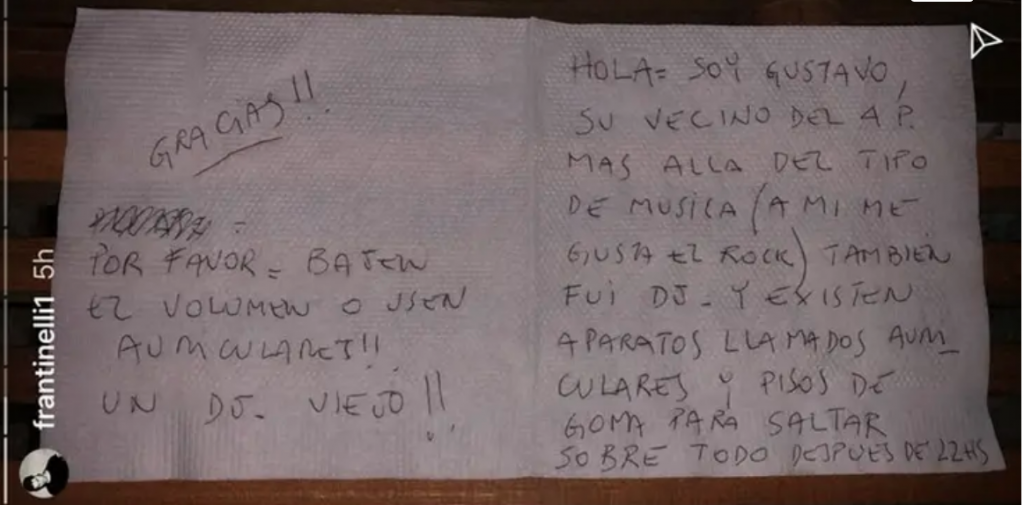 HOLA= SOY GUSTAVO,
SU VECINO DEL AP.
MAS ALLA DEL TIPO
DE MUSICA (A MI ME
GUSTA EL ROCK) TAMBIEN
FUI DJ- Y EXISTEN
APARATOS LLAMADOS AURI_
CULARES Y PISOS DE
GOMA PARA SALTAR
SOBRE TODO DESPUES DE 22HS
GRACIAS!!
POR FAVOR= BAJEN
EL VOLUMEN O USEN
AURICULARES!!
UN DJ- VIEJO!!
frantinelli1 5h